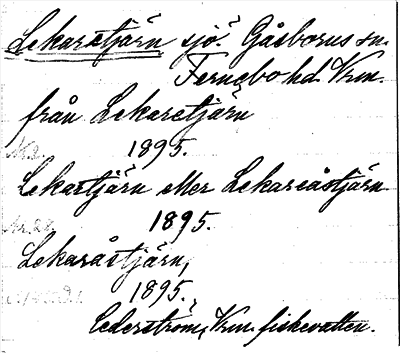 Lekaretjärn sjö. Gåsborns sn.
Fernebo hd. Vrm.
från Lekaretjärn
1895.
Lekartjärn eller Lekareåstjärn
1895.
Lekaråstjärn,
1895.,
Cederström, Vrm. fiskevatten.